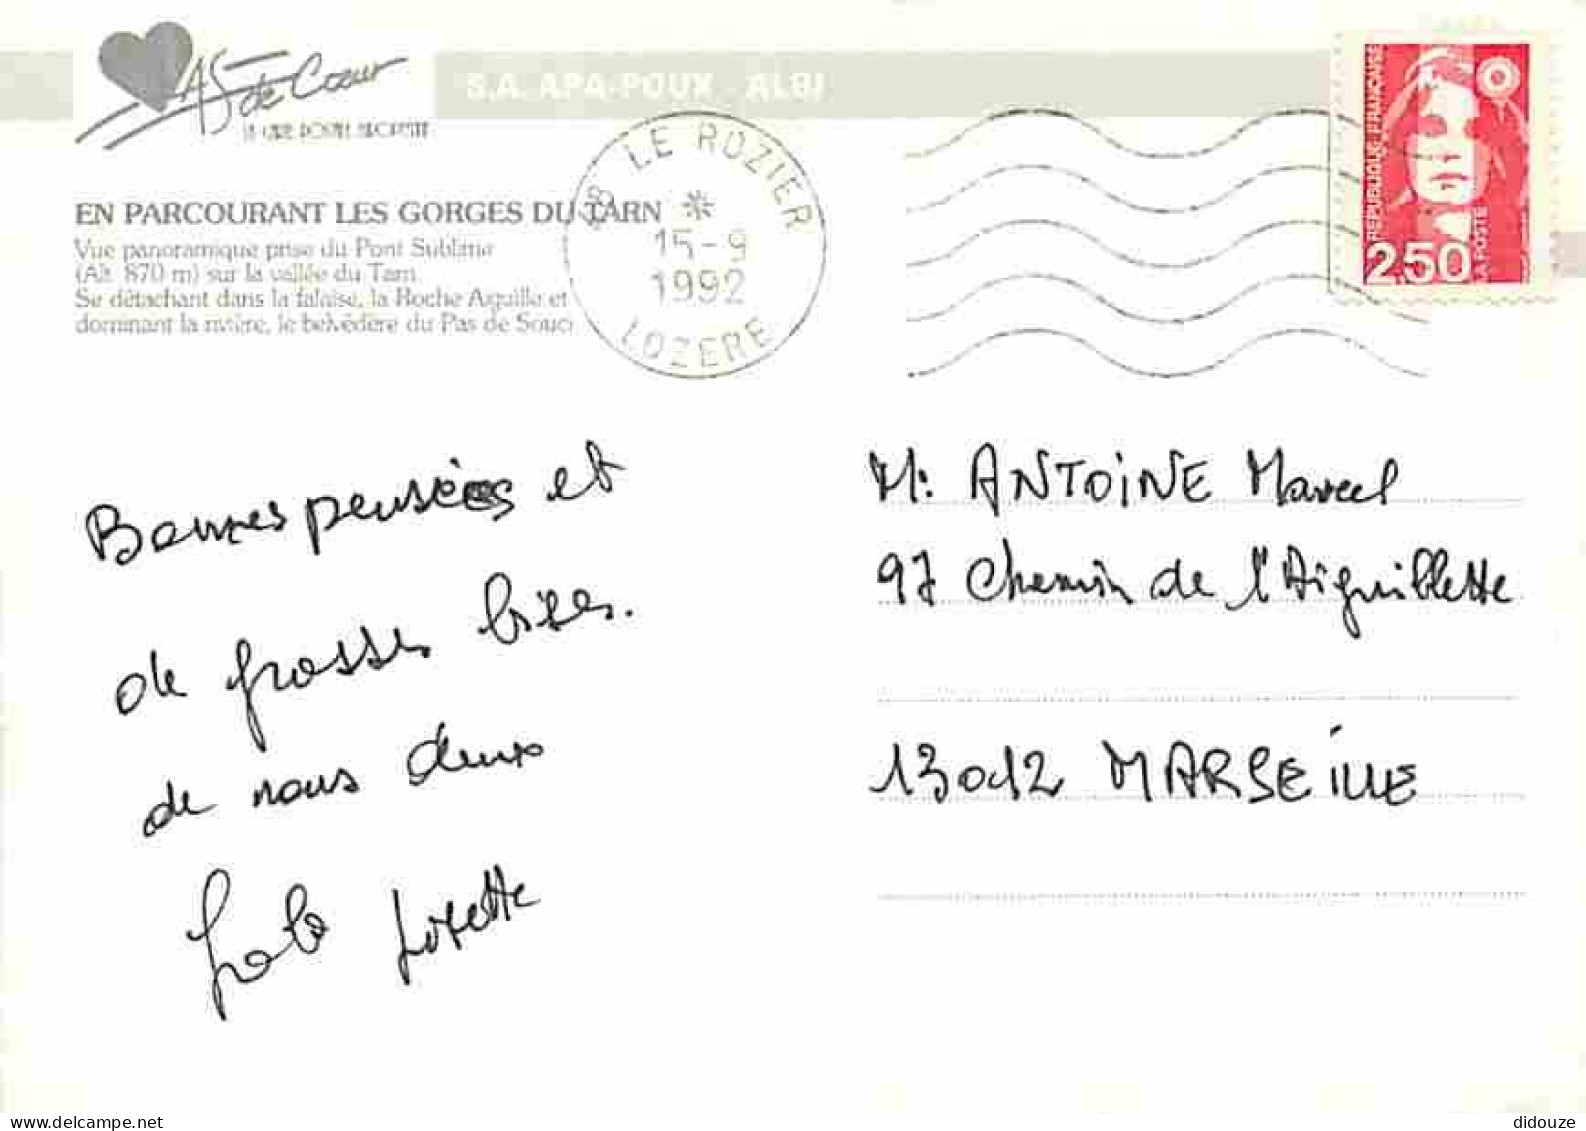 AS de Cœur
S.A. APA-POUX - ALBI
EN PARCOURANT LES GORGES DU TARN
Vue panoramique prise du Pont Sublime
(Alt. 870 m) sur la vallée du Tarn.
Se détachant dans la falaise, la Roche Aiguille et
dominant la rivière, le belvédère du Pas de Souci
48 LE ROZIER
15-9
1992
LOZERE
REPUBLIQUE FRANÇAISE
2,50
LA POSTE
Bonnes pensées et
de grosses bises.
de nous deux
Josette
M. ANTOINE Marcel
97 Chemin de l'Aiguillette
13012 MARSEILLE
www.delcampe.net
didouze